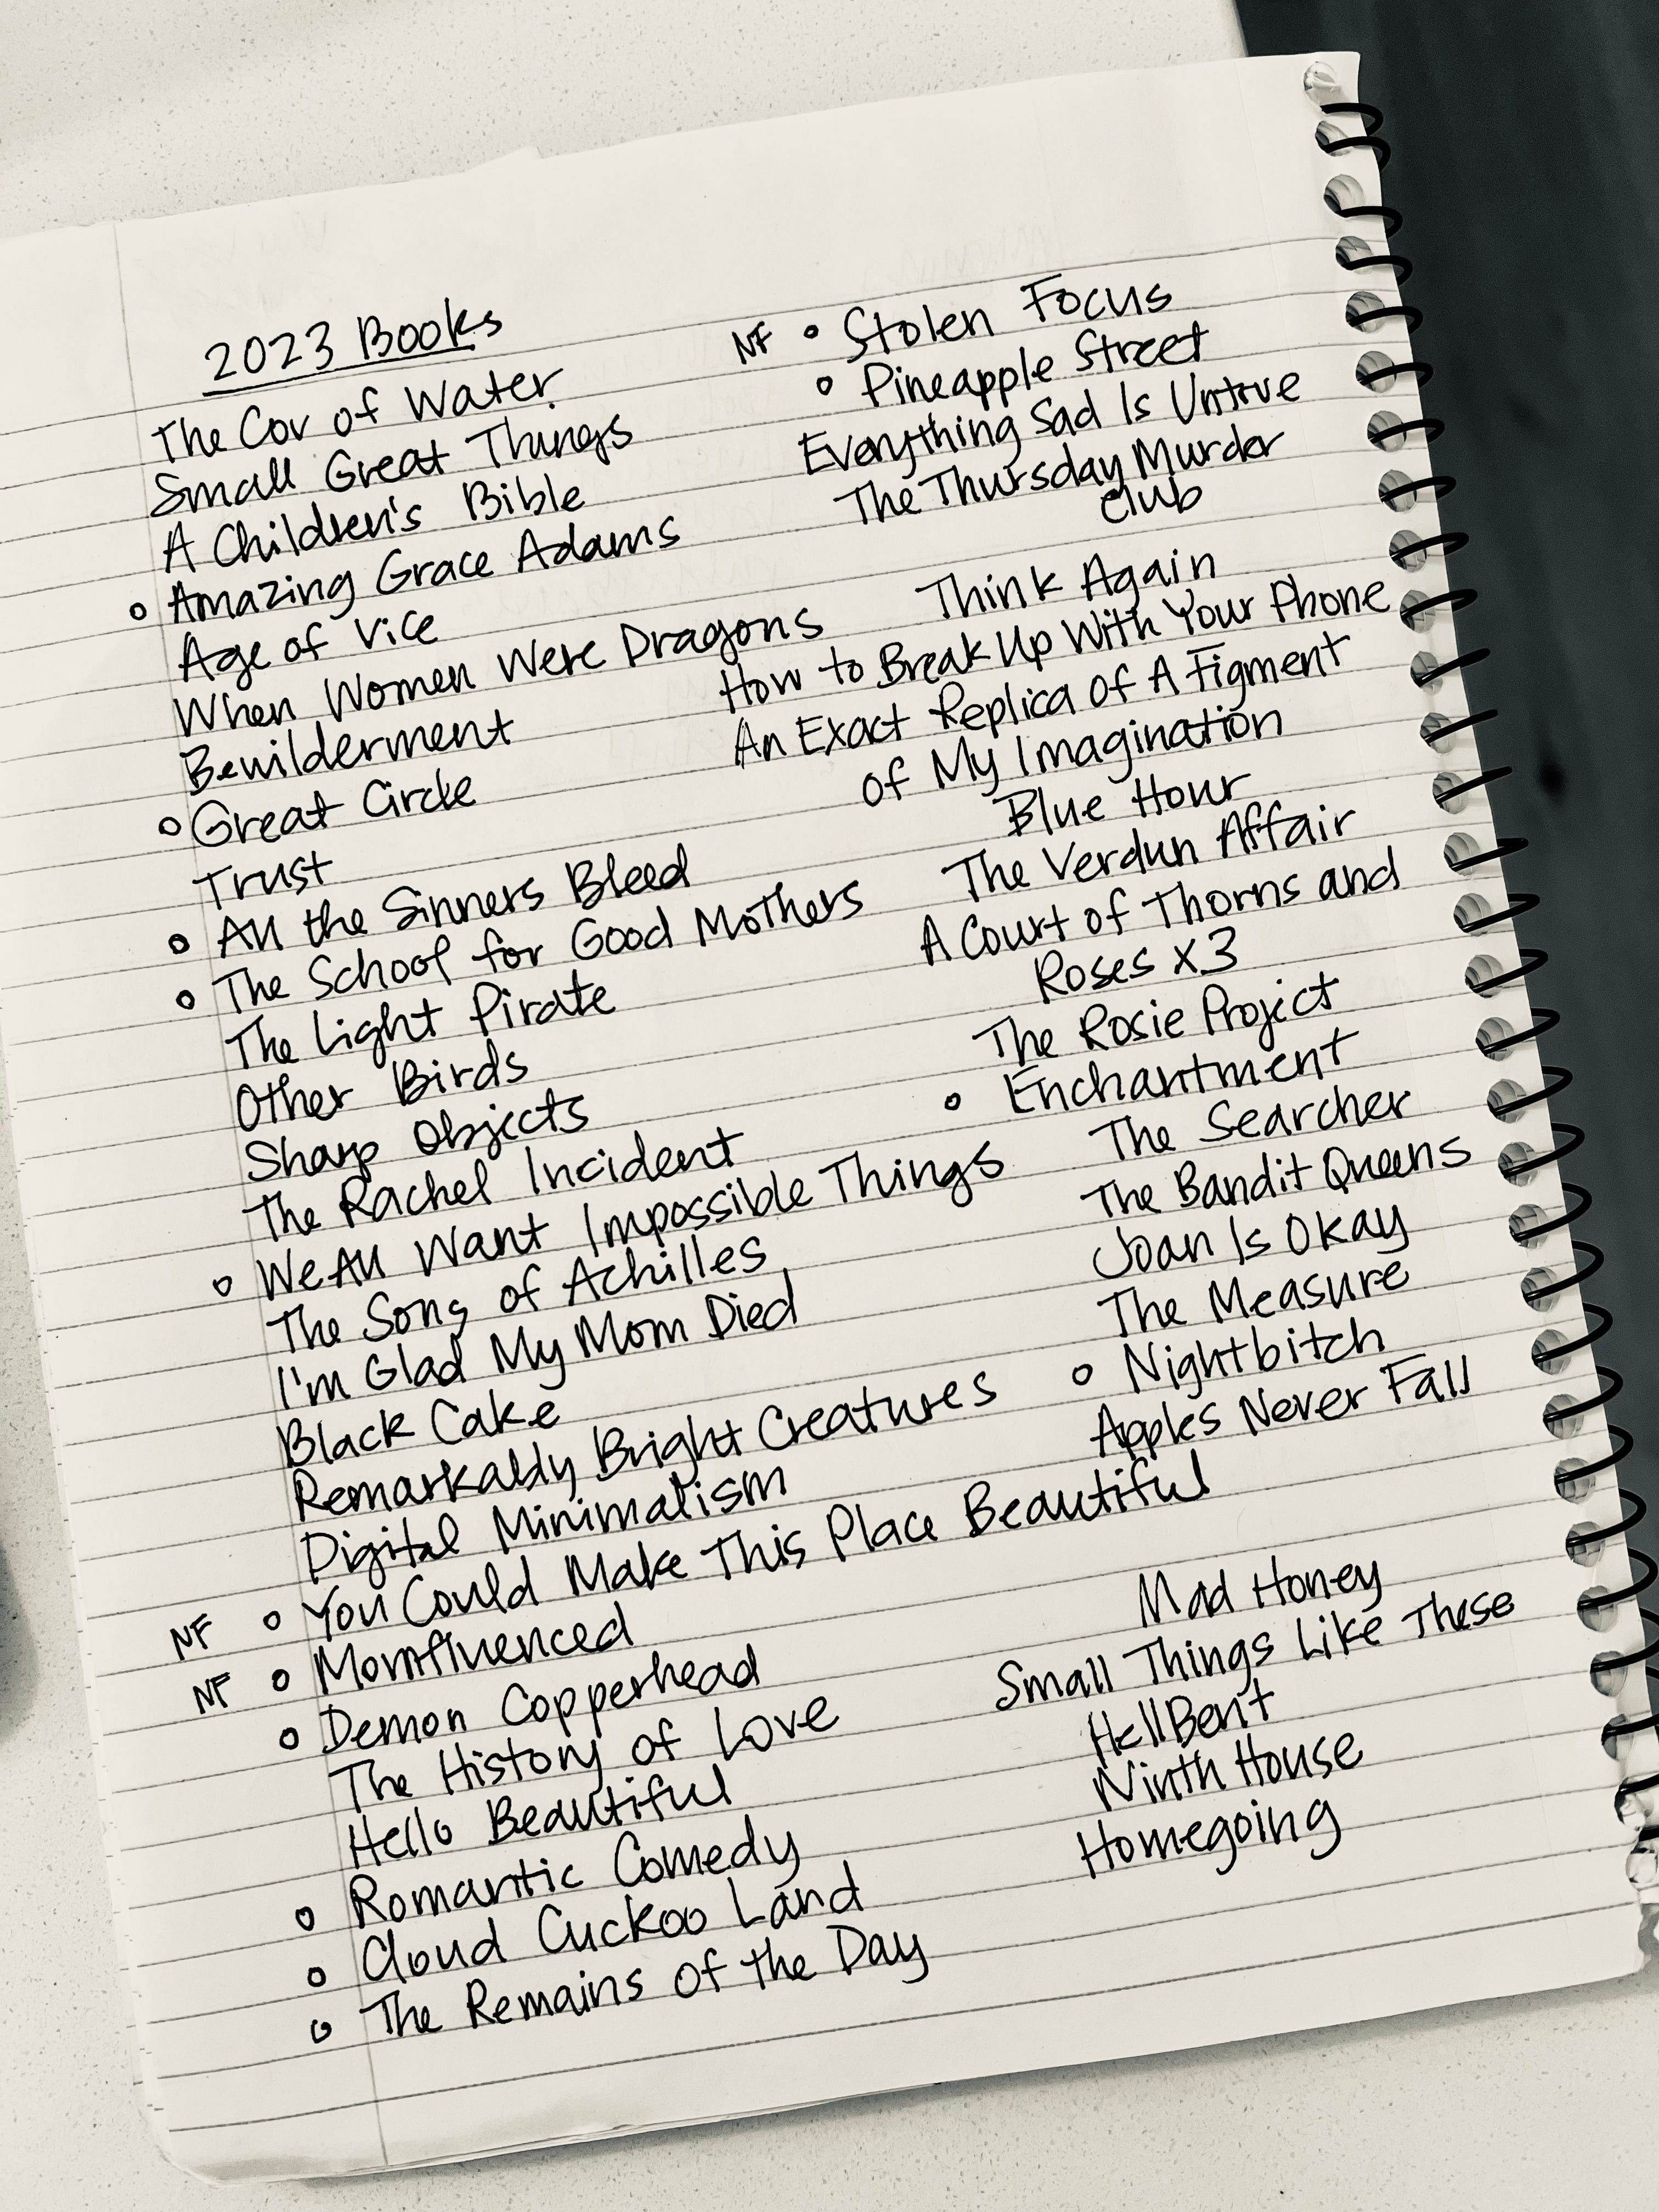 2023 Books
The Cov of Water
Small Great Things
A Children's Bible
Amazing Grace Adams
Age of Vice
When Women Were Dragons
Bewilderment
Great Circle
Trust
All the Sinners Bleed
The School for Good Mothers
The Light Pirate
Other Birds
Sharp Objects
The Rachel Incident
We All Want Impossible Things
The Song of Achilles
I'm Glad My Mom Died
Black Cake
Remarkably Bright Creatures
Digital Minimalism
NF You Could Make This Place Beautiful
NF Momfluenced
Demon Copperhead
The History of Love
Hello Beautiful
Romantic Comedy
Cloud Cuckoo Land
The Remains of the Day
NF Stolen Focus
Pineapple Street
Everything Sad Is Untrue
The Thursday Murder
Club
Think Again
How to Break Up With Your Phone
An Exact Replica of A Figment
of My Imagination
Blue Hour
The Verdun Affair
A Court of Thorns and
Roses x3
The Rosie Project
Enchantment
The Searcher
The Bandit Queens
Joan Is Okay
The Measure
Nightbitch
Apples Never Fall
Mad Honey
Small Things Like These
Hell Bent
Ninth House
Homegoing